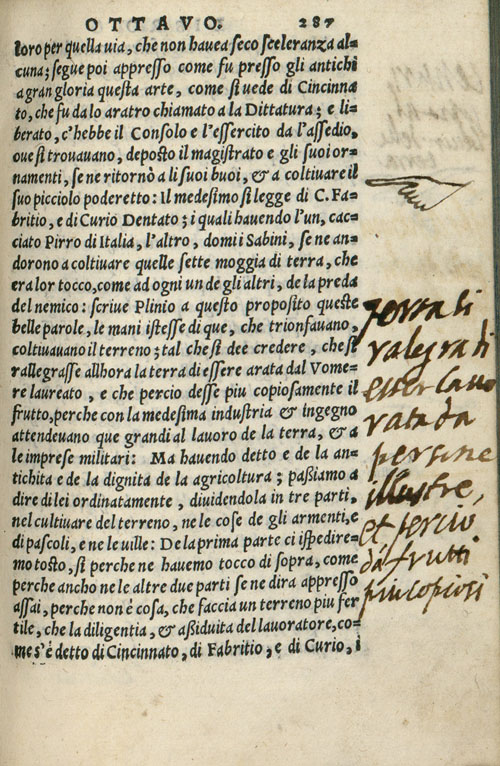 OTTAVO. 287
loro per quella uia, che non hauea seco sceleranza al-
cuna; segue poi appresso come fu presso gli antichi
a gran gloria questa arte, come si uede di Cincinna
to, che fu da lo aratro chiamato a la Dittatura; e li-
berato, c'hebbe il Consolo e l'essercito da l'assedio,
oue si trouauano, deposto il magistrato e gli suoi or-
namenti, se ne ritornò a li suoi buoi, & a coltiuare il
suo picciolo poderetto: Il medesimo si legge di C. Fa-
britio, e di Curio Dentato; i quali hauendo l'un, cac-
ciato Pirro di Italia, l'altro, domi i Sabini, se ne an-
dorono a coltiuare quelle sette moggia di terra, che
era lor tocco, come ad ogni un de gli altri, de la preda
del nemico: scriue Plinio a questo proposito queste
belle parole, le mani istesse di que, che trionfauano,
coltiuauano il terreno; tal che si dee credere, che si
rallegrasse allhora la terra di essere arata dal Vome-
re laureato, e che percio desse piu copiosamente il
frutto, perche con la medesima industria & ingegno
attendeuano que grandi al lauoro de la terra, & a
le imprese militari: Ma hauendo detto e de la an-
tichita e de la dignita de la agricoltura; passiamo a
dire di lei ordinatamente, diuidendola in tre parti,
nel cultiuare del terreno, ne le cose de gli armenti, e
di pascoli, e ne le uille: De la prima parte ci ispedire-
mo tosto, si perche ne hauemo tocco di sopra, come
perche ancho ne le altre due parti se ne dira appresso
assai, perche non è cosa, che faccia un terreno piu fer
tile, che la diligentia, & assiduita del lauoratore, co-
me s'é detto di Cincinnato, di Fabritio, e di Curio, i
terra si
ralegra di
esser lauo
rata da
persone
illustre,
et percio
dà frutti
piu copiosi